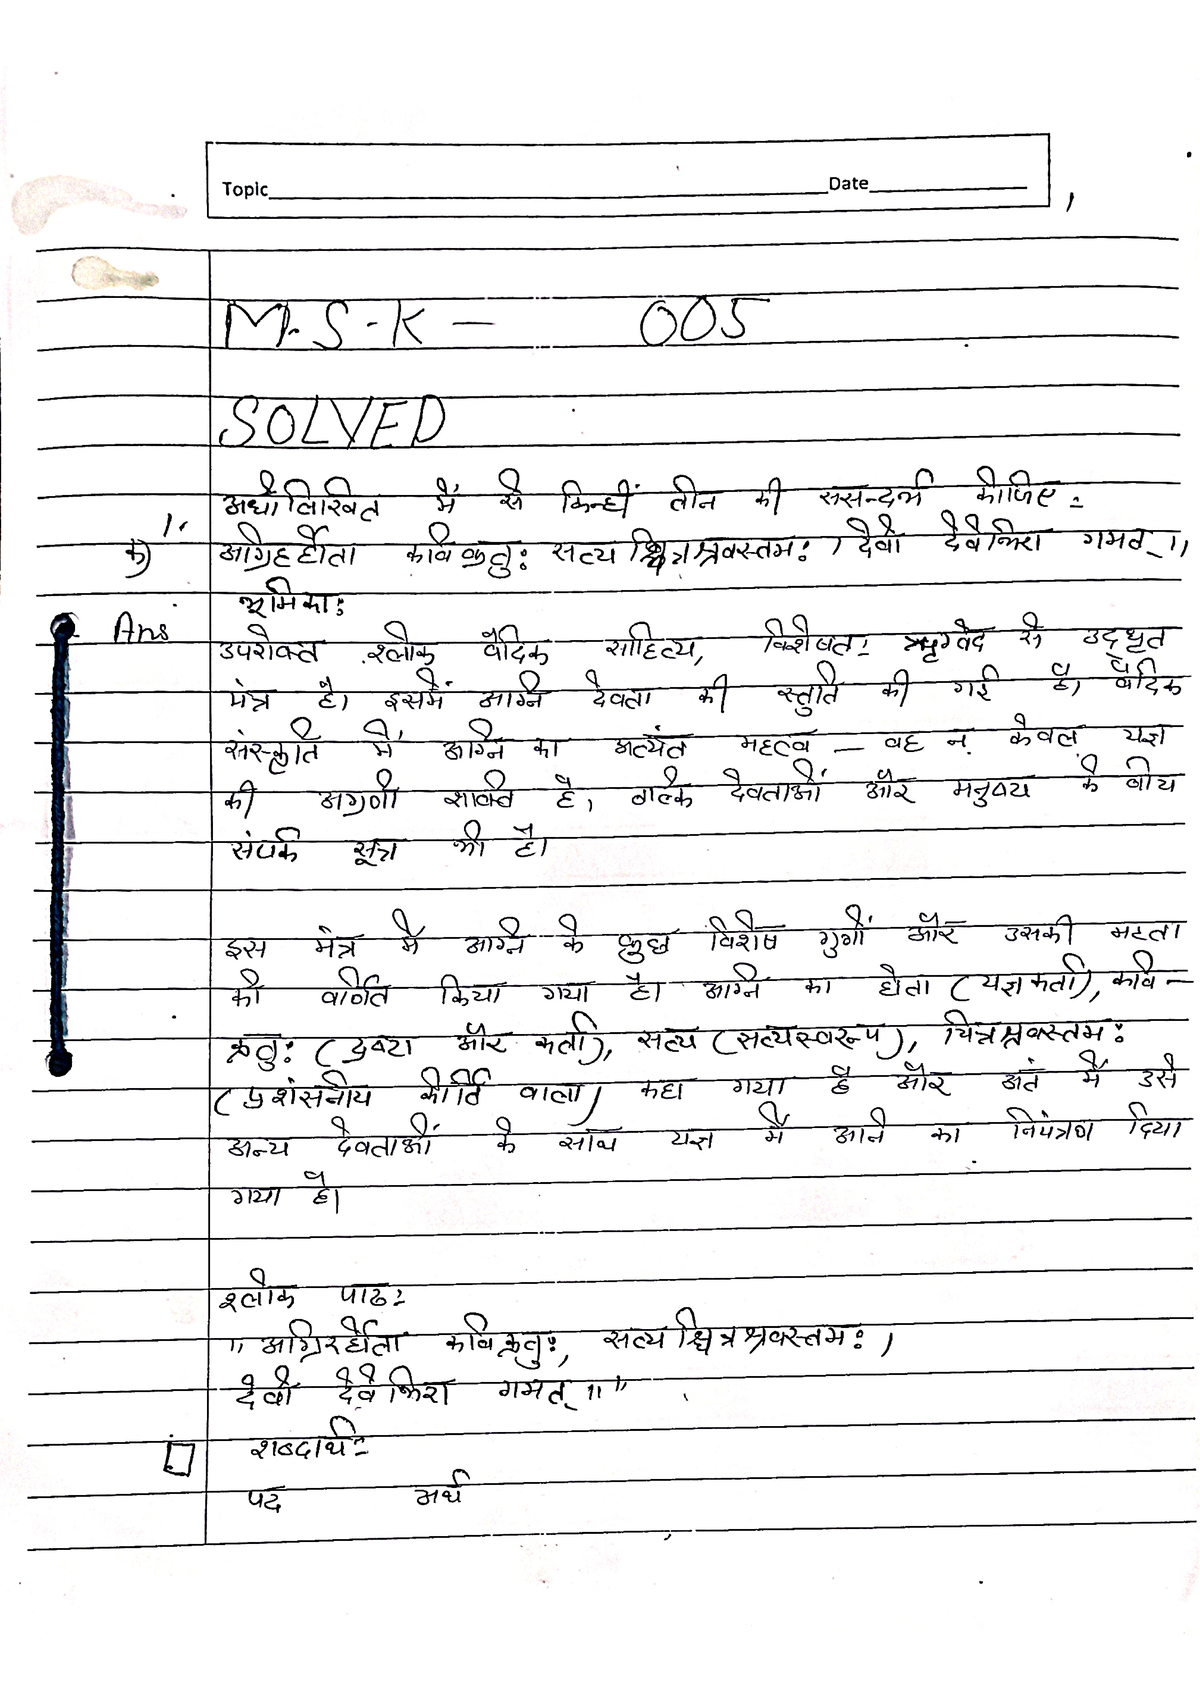 Topic Date
M.S-K - 005
SOLVED
अधोलिखित में से किन्हीं तीन की ससन्दर्भ कीजिए :-
1.
क) अग्निर्होता कविक्रतु: सत्यश्चित्रश्रवस्तम: । देवो देवेभिरा गमत् ॥
भूमिका:
Ans उपरोक्त श्लोक वैदिक साहित्य, विशेषत: ऋग्वेद से उद्धृत
मंत्र है। इसमें अग्नि देवता की स्तुति की गई है, वैदिक
संस्कृति में अग्नि का अत्यंत महत्व – वह न केवल यज्ञ
की अग्रणी शक्ति है, बल्कि देवताओं और मनुष्य के बीच
संपर्क सूत्र भी है।
इस मंत्र में अग्नि के कुछ विशेष गुणों और उसकी महत्ता
को वर्णित किया गया है। अग्नि का होता (यज्ञकर्ता), कवि –
क्रतु: (द्रष्टा और कर्ता), सत्य (सत्यस्वरूप), चित्रश्रवस्तम:
(प्रशंसनीय कीर्ति वाला) कहा गया है और अंत में उसे
अन्य देवताओं के साथ यज्ञ में आने का निमंत्रण दिया
गया है।
श्लोक पाठ:-
"अग्निर्होता कविक्रतु:, सत्यश्चित्रश्रवस्तम: ।
देवो देवेभिरा गमत् ॥"
शब्दार्थ:-
पद अर्थ